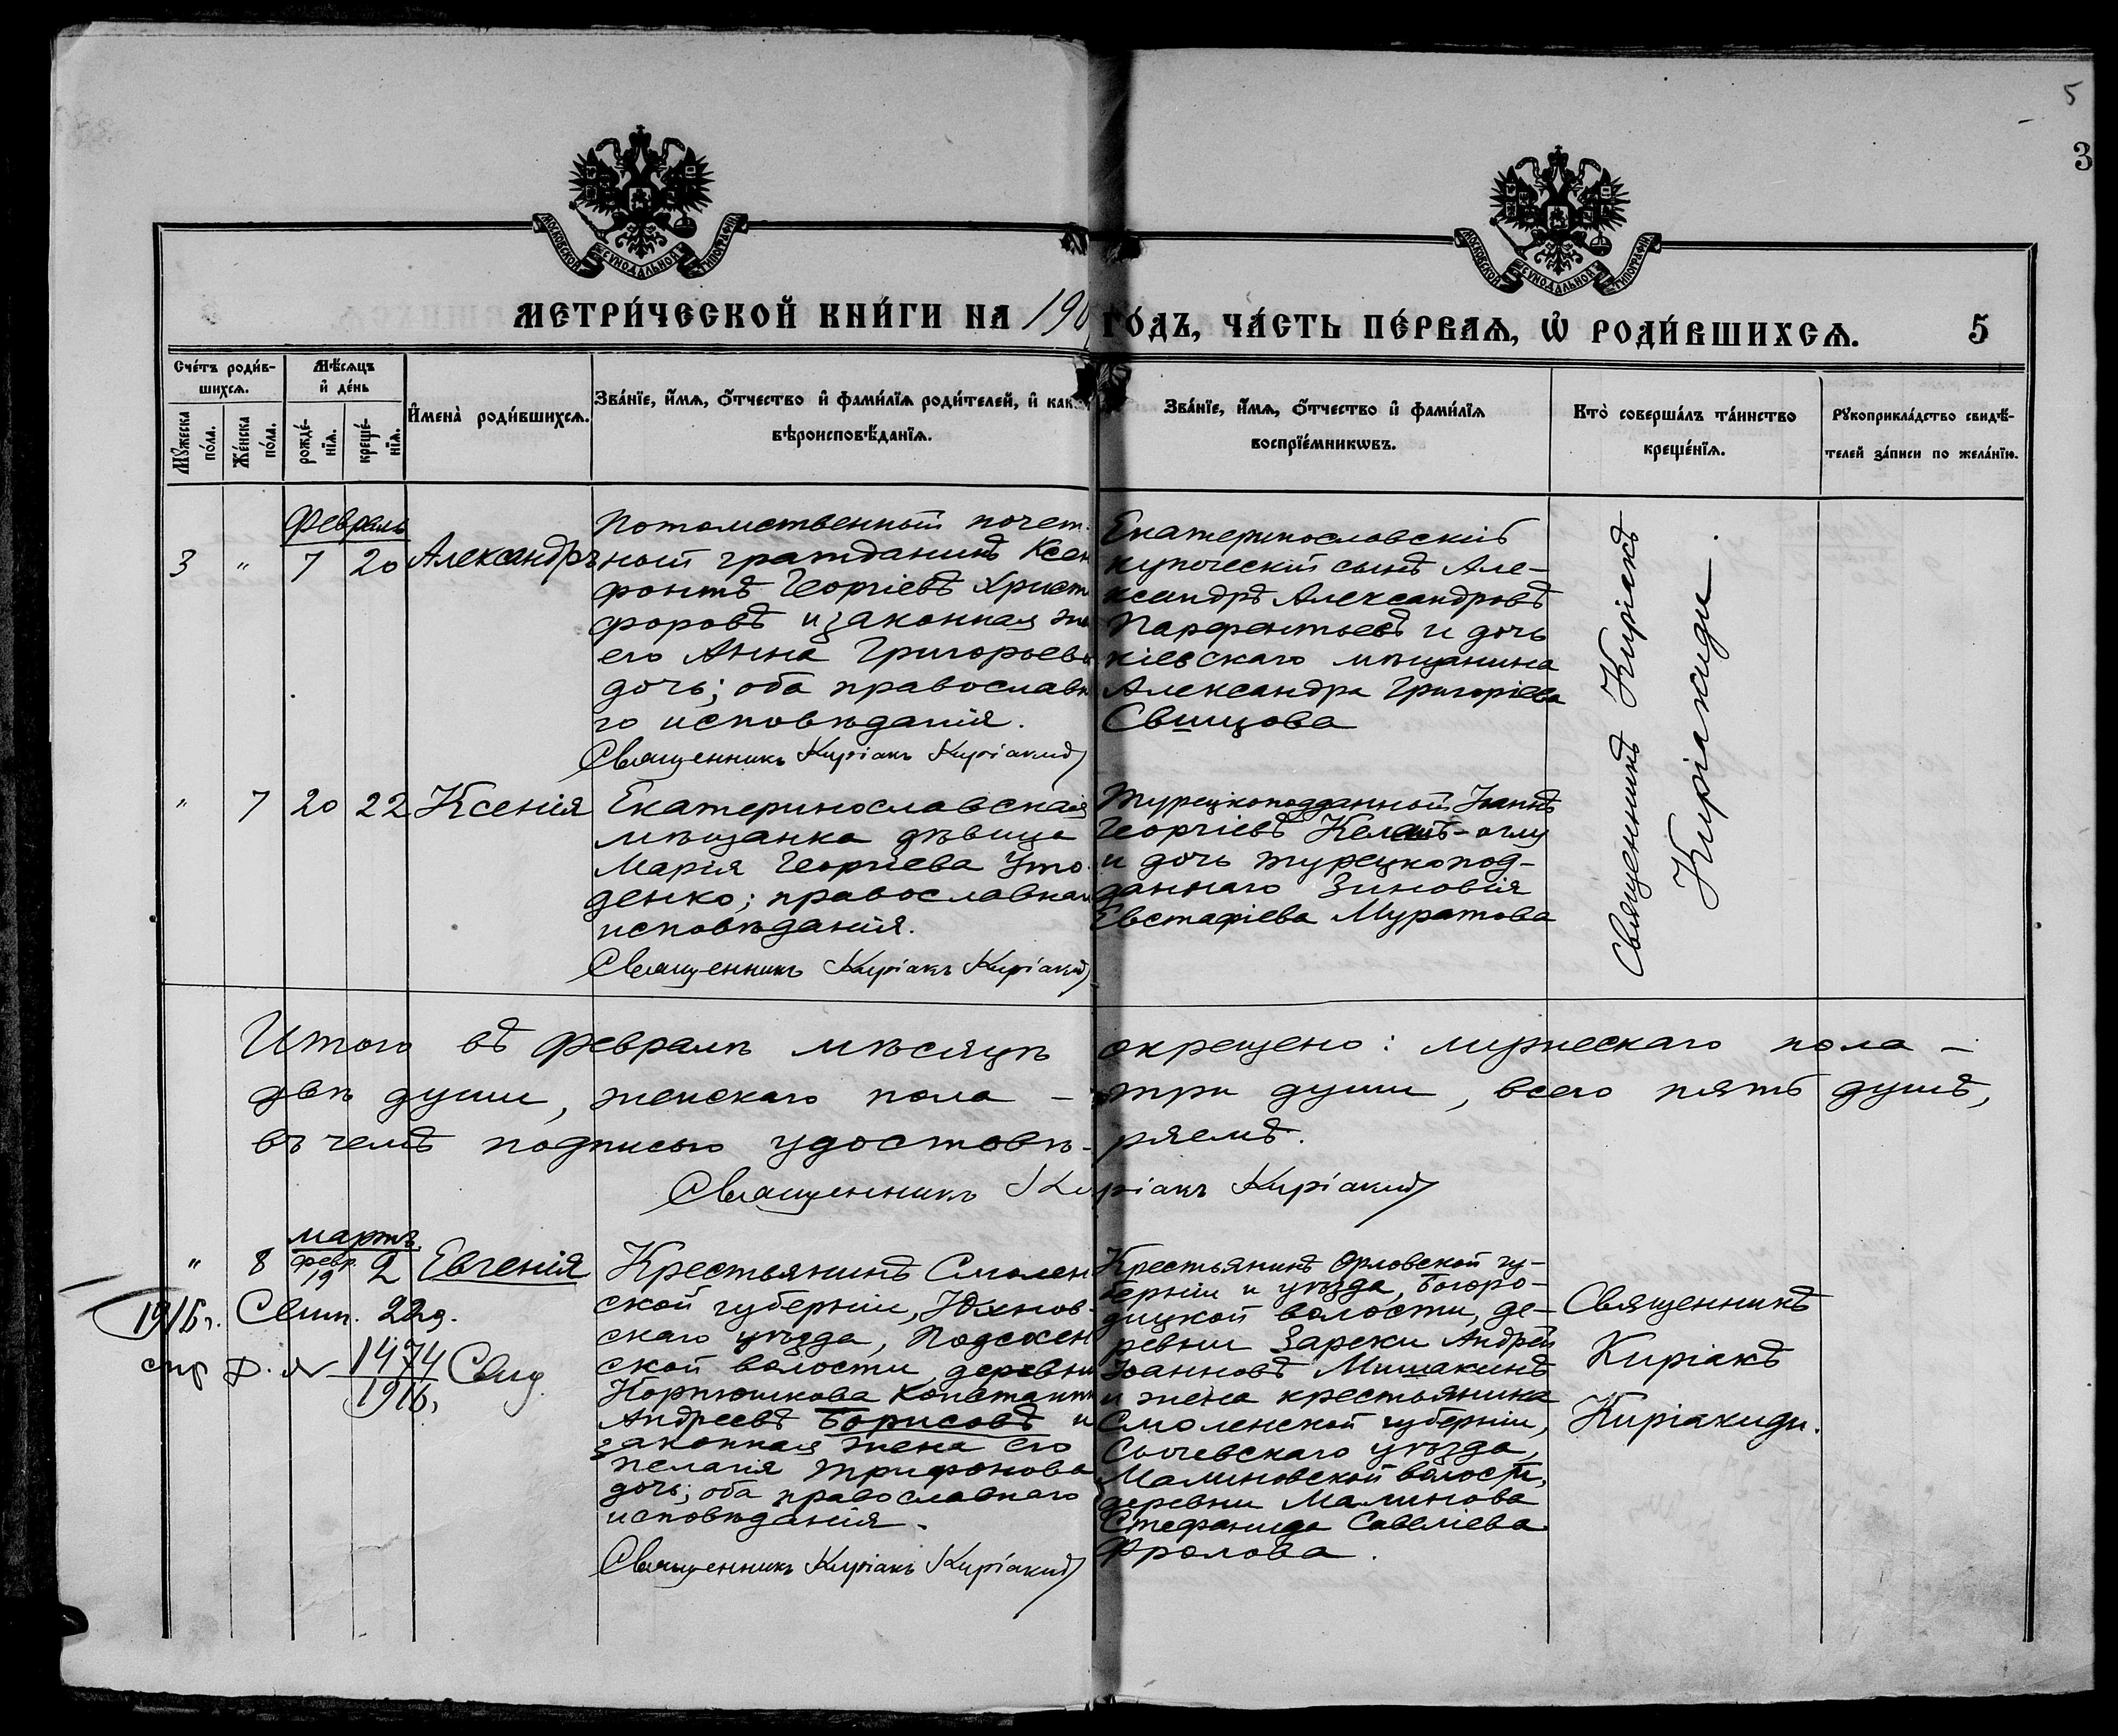 5
3
МОСКОВСКОЙ СѴНОДАЛЬНОЙ ТИПОГРАФІИ
МОСКОВСКОЙ СѴНОДАЛЬНОЙ ТИПОГРАФІИ
МЕТРИ́ЧЕСКОЙ КНИ́ГИ НА 190 ГО́ДЪ, ЧА́СТЬ ПЕ́РВАѦ, Ѡ҆ РОДИ́ВШИХСѦ. 5
Сче́тъ роди́в-
шихсѧ.
Мѣ́сѧцъ
и҆ де́нь
Мꙋ́жеска
по́ла.
Же́нска
по́ла.
рожде́-
нїѧ.
креще́-
нїѧ.
И҆мена̀ роди́вшихсѧ.
Зва́нїе, и҆́мѧ, ѻ҆́тчество и҆ фами́лїѧ роди́телей, и҆ как
вѣроисповѣ́данїѧ.
Зва́нїе, и҆́мѧ, ѻ҆́тчество и҆ фами́лїѧ
воспрїе́мникѡвъ.
Кто̀ соверша́лъ та́инство
креще́нїѧ.
Рꙋкоприкла́дство свидѣ́-
телей за́писи по жела́нїю.
Февраль
3 " 7 20 Александръ
Потомственный почет-
ный гражданинъ Ксен
фонтъ Георгіевъ Христ
форовъ и законная же
его Анна Григорьева
дочь; оба православн
го исповѣданія.
Священникъ Киріакъ Киріакиди
Екатеринославскій
купеческій сынъ Але-
ксандръ Александровъ
Парфентьевъ и дочь
кіевскаго мѣщанина
Александра Григоріева
Свищова
Священникъ Киріакъ
Киріакиди.
" 7 20 22 Ксенія
Екатеринославская
мѣщанка дѣвица
Марія Георгіева Уто-
денко; православнаго
исповѣданія.
Священникъ Киріакъ Киріакиди
Турецкоподданный Іоаннъ
Георгіевъ Келешъ-оглу
и дочь турецкопод-
даннаго Зиновія
Евстафіева Муратова
Итого въ февралѣ мѣсяцѣ окрещено: мужескаго пола –
двѣ души, женскаго пола – три души, всего пять душъ,
въ чемъ подписью удостовѣ-ряемъ.
Священникъ Киріакъ Киріакиди
мартъ
" 8 февр. 19 2 Евгенія
1915г. Сент. 22д.
1474
1916. Свид.
Крестьянинъ Смолен
ской губерніи, Юхнов-
скаго уѣзда, Подсосен
ской волости, деревни
Корнюшкова Константинъ
Андреевъ Борисовъ и
законная жена его
Пелагія Трифонова
дочь; оба православнаго
исповѣданія.
Священникъ Киріакъ Киріакиди
Крестьянинъ Орловской гу-
берніи и уѣзда, Богоро-
дицкой волости, де-
ревни Зареки Андрей
Іоанновъ Мишакинъ
и жена крестьянина
Смоленской губерніи,
Сычевскаго уѣзда,
Малиновской волости,
деревни Малинова
Стефанида Савеліева
Фролова.
Священникъ
Киріакъ
Киріакиди.